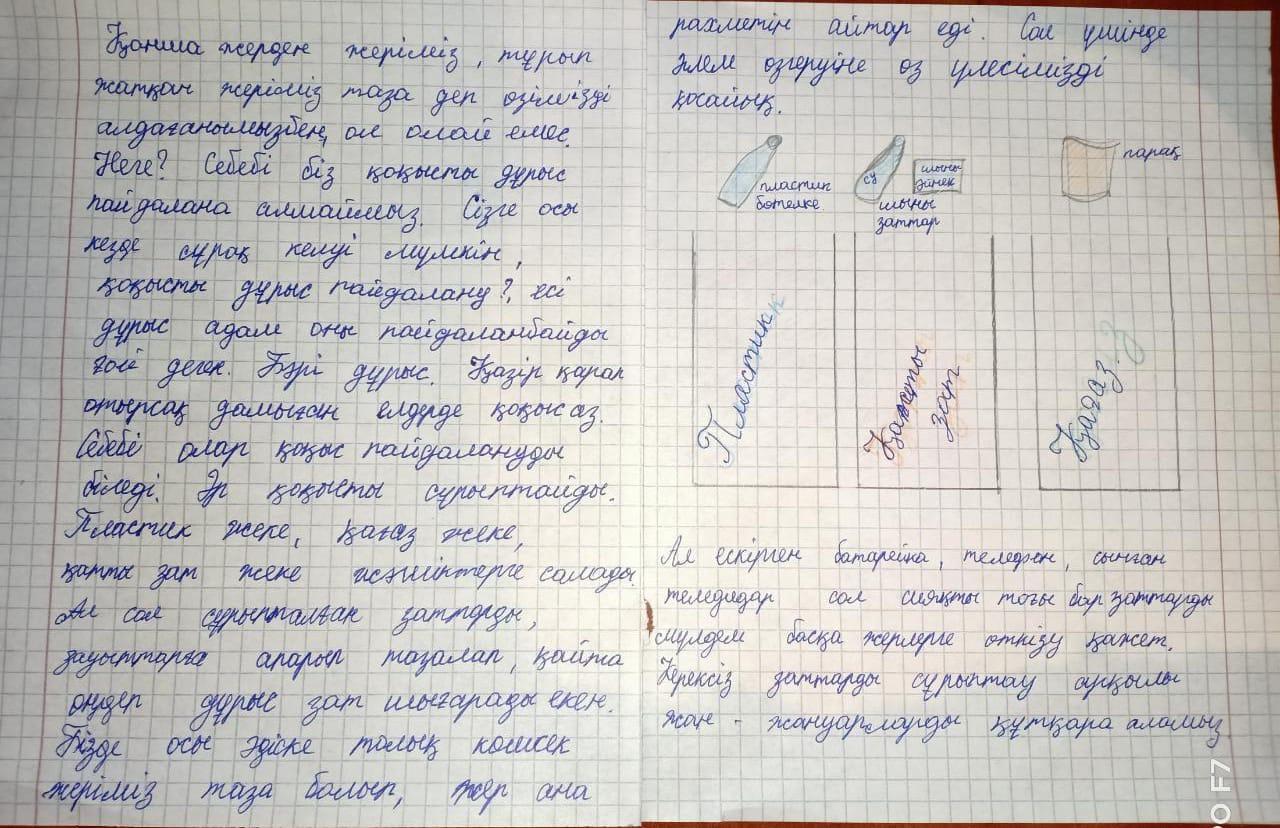 Қанша жерден жеріміз, тұрып
жатқан жеріміз таза деп өзімізді
алдағанымызбен, ол олай емес.
Неге? Себебі біз қоқысты дұрыс
пайдалана алмаймыз. Сізге осы
кезде сұрақ келуі мүмкін,
қоқысты дұрыс пайдалану?, есі
дұрыс адам оны пайдаланбайды
ғой деген. Бәрі дұрыс. Қазір қарап
отырсақ дамыған елдерде қоқыс аз.
Себебі олар қоқыс пайдалануды
біледі. Әр қоқысты сұрыптайды.
Пластик жеке, қағаз жеке,
қатты зат жеке жәшіктерге салады.
Ал сол сұрыпталған заттарды,
зауыттарға апарып тазалап, қайта
өңдеп дұрыс зат шығарады екен.
Бізде осы әдіске толық көшсек
жеріміз таза болып, жер ана
рахметін айтар еді. Сол үшінде
әлем өзгеруіне өз үлесімізді
қосайық.
пластик
бөтелке
су
шыны
әйнек
шыны
заттар
парақ
Пластик
Қажетті
зат
Қағаз.
Ал ескірген батарейка, телефон, сынған
теледидар сол сияқты тоғы бар заттарды
мүлдем басқа жерлерге өткізу қажет.
Керексіз заттарды сұрыптау арқылы
жан - жануарларды құтқара аламыз
O F7